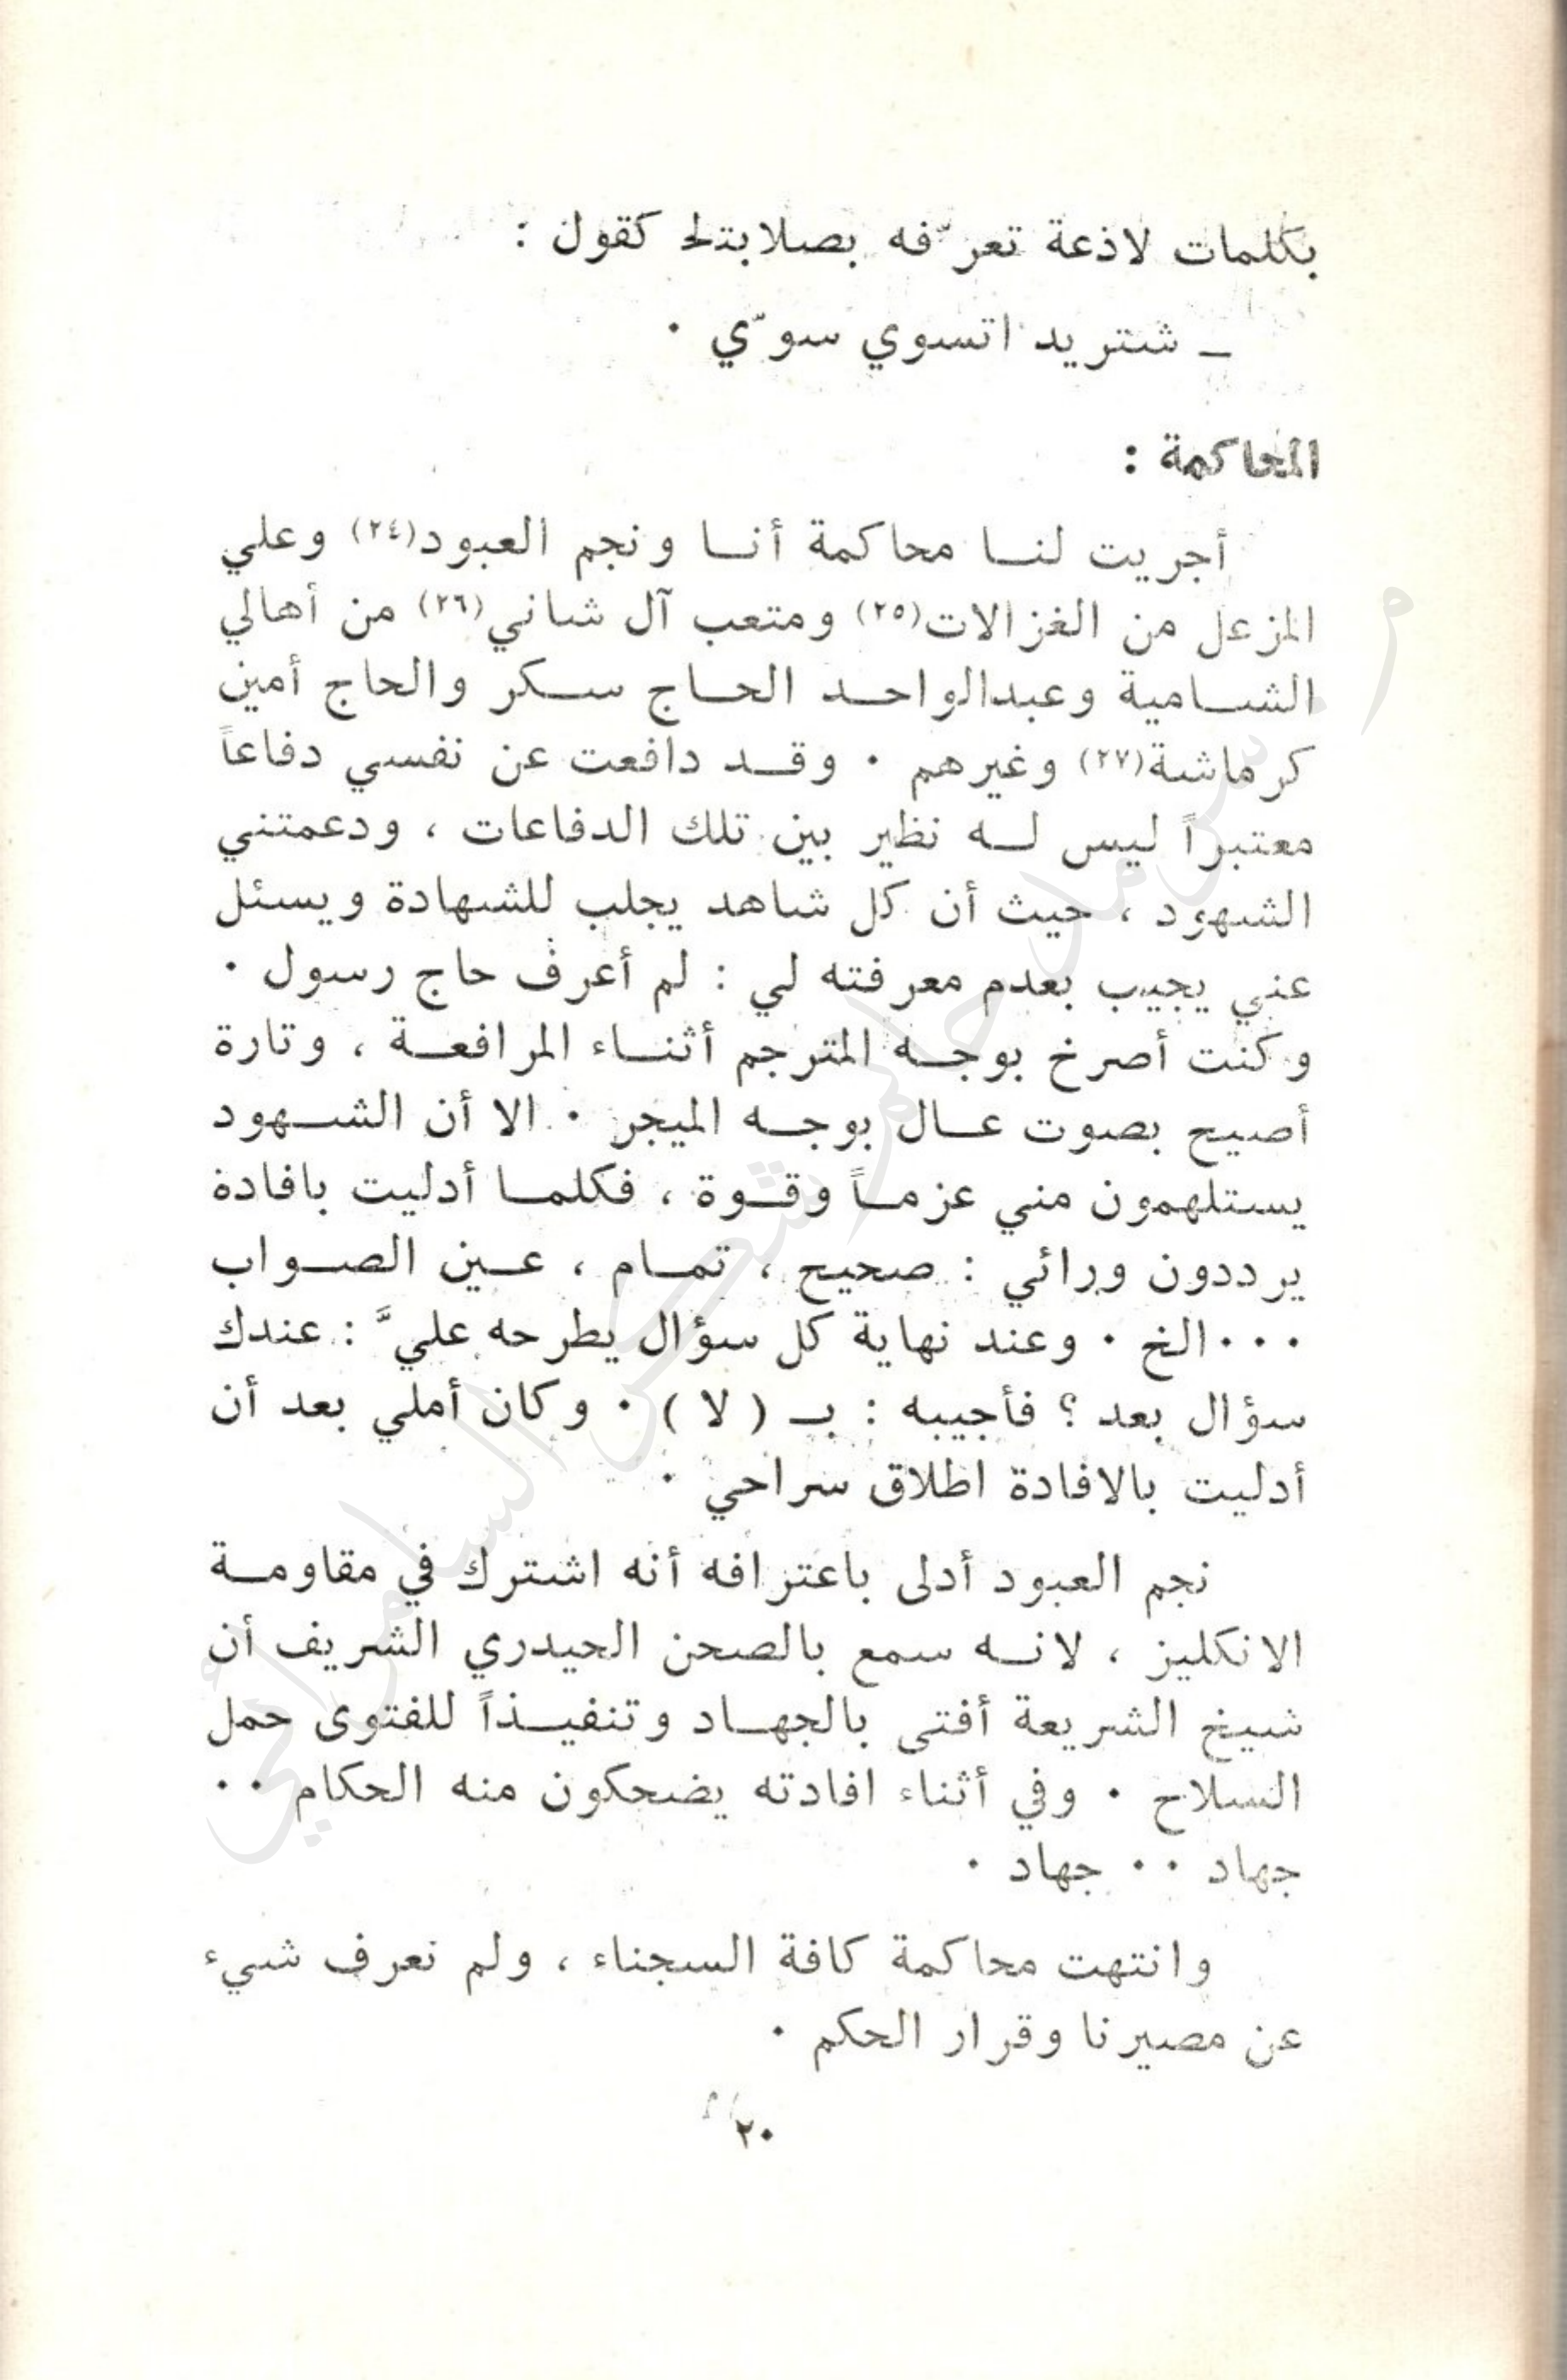 بكلمات لاذعة تعرّفه بصلابتك كقول :
ـ شتريد اتسوي سوّي ٠
المحاكمة :
أجريت لنا محاكمة أنا ونجم العبود(٢٤) وعلي
المزعل من الغزالات(٢٥) ومتعب آل شاني(٢٦) من أهالي
الشامية وعبدالواحد الحاج سكر والحاج أمين
كرماشة(٢٧) وغيرهم ٠ وقد دافعت عن نفسي دفاعاً
معتبراً ليس له نظير بين تلك الدفاعات ، ودعمتني
الشهود ، حيث أن كل شاهد يجلب للشهادة ويسئل
عني يجيب بعدم معرفته لي : لم أعرف حاج رسول ٠
وكنت أصرخ بوجه المترجم أثناء المرافعة ، وتارة
أصيح بصوت عال بوجه الميجر ٠ الا أن الشهود
يستلهمون مني عزماً وقوة ، فكلما أدليت بافادة
يرددون ورائي : صحيح ، تمام ، عين الصواب
٠٠٠الخ ٠ وعند نهاية كل سؤال يطرحه عليَّ : عندك
سؤال بعد ؟ فأجيبه : بـ ( لا ) ٠ وكان أملي بعد أن
أدليت بالافادة اطلاق سراحي ٠
نجم العبود أدلى باعترافه أنه اشترك في مقاومة
الانكليز ، لانه سمع بالصحن الحيدري الشريف أن
شيخ الشريعة أفتى بالجهاد وتنفيذاً للفتوى حمل
السلاح ٠ وفي أثناء افادته يضحكون منه الحكام ٠٠
جهاد ٠٠ جهاد ٠
وانتهت محاكمة كافة السجناء ، ولم نعرف شيء
عن مصيرنا وقرار الحكم ٠
٢٠